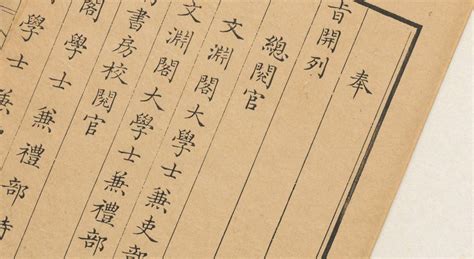 奉
旨開列
總閱官
文淵閣大學士兼吏部
文淵閣大學士兼禮部
書房校閱官
閣學士兼禮部侍
學士兼